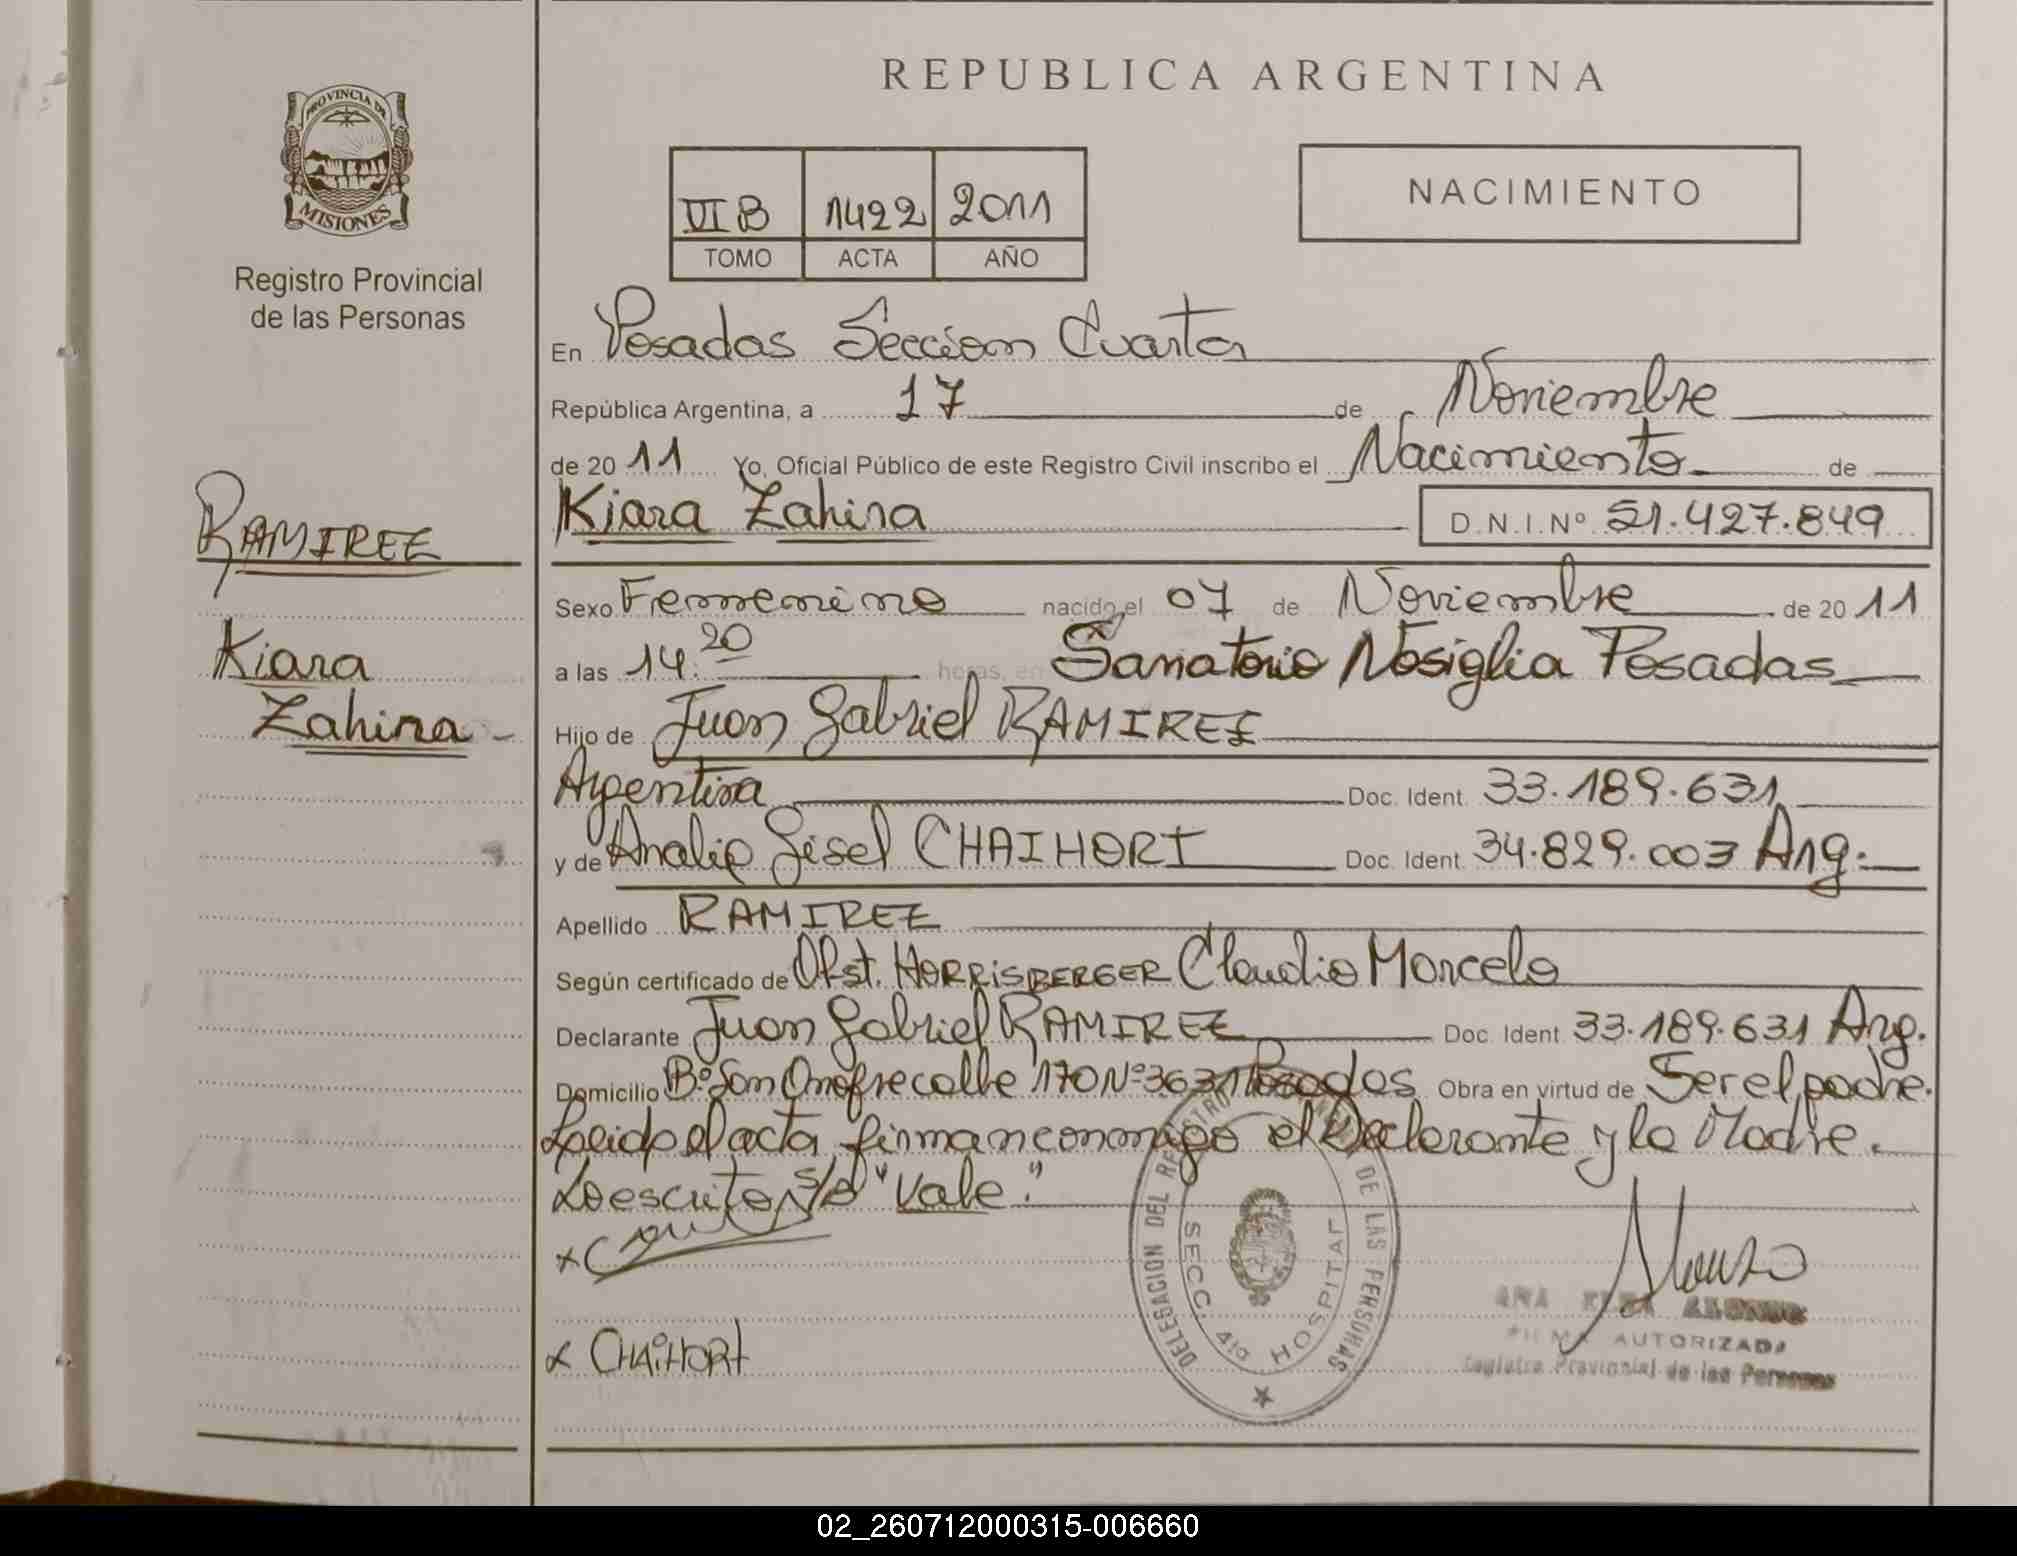 PROVINCIA DE
MISIONES
Registro Provincial
de las Personas
RAMIREZ
Kiara
Zahira
REPUBLICA ARGENTINA
VI B 1422 2011
TOMO ACTA AÑO
NACIMIENTO
En Posadas Seccion Cuarta
República Argentina, a 17 de Noviembre
de 2011 Yo, Oficial Público de este Registro Civil inscribo el Nacimiento de
Kiara Zahira D.N.I.Nº 51.427.849
Sexo Femenino nacido el 07 de Noviembre de 2011
a las 14:20 horas, en Sanatorio Nosiglia Posadas
Hijo de Juan Gabriel RAMIREZ
Argentina Doc. Ident. 33.189.631
y de Analia Gisel CHAIHORT Doc. Ident. 34.829.003 Arg.
Apellido RAMIREZ
Según certificado de Obst. HORRISBERGER Claudio Marcelo
Declarante Juan Gabriel RAMIREZ Doc. Ident. 33.189.631 Arg.
Domicilio Bº San Onofre calle 170 Nº 3631 Posadas Obra en virtud de Ser el padre.
Leida el acta firman conmigo el Declarante y la Madre.
Lo escrito s/b "Vale."
x CHAIHORT
DELEGACION DEL REGISTRO DE LAS PERSONAS
SECC. 4ta HOSPITAL
Alonso
ANA ELBA ALONSO
FIRMA AUTORIZADA
Registro Provincial de las Personas
02_260712000315-006660